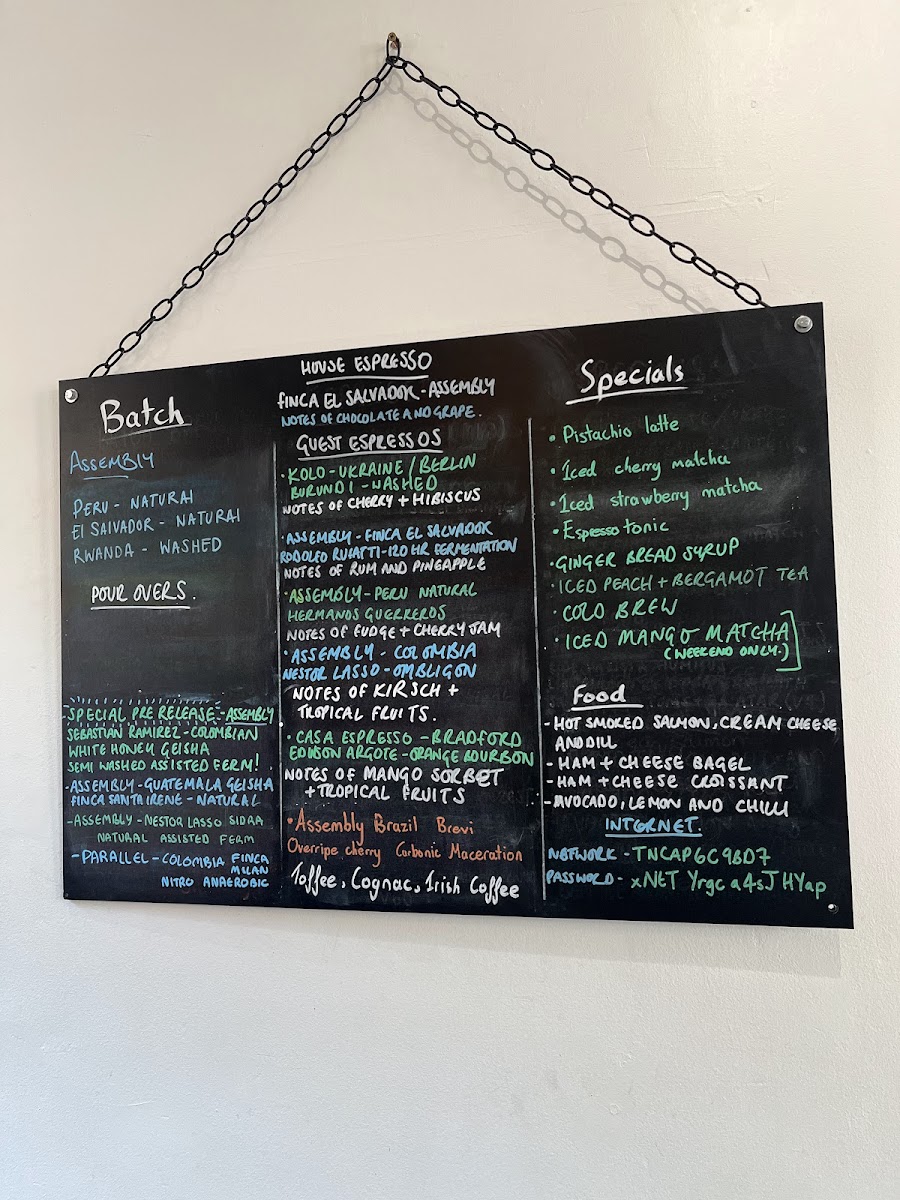 Batch
ASSEMBLY
PERU - NATURAL
EL SALVADOR - NATURAL
RWANDA - WASHED
POUR OVERS.
-SPECIAL PRE RELEASE - ASSEMBLY
SEBASTIAN RAMIREZ - COLOMBIAN
WHITE HONEY GEISHA
SEMI WASHED ASSISTED FERM!
-ASSEMBLY - GUATEMALA GEISHA
FINCA SANTA IRENE - NATURAL
-ASSEMBLY - NESTOR LASSO SIDRA
NATURAL ASSISTED FERM
-PARALLEL - COLOMBIA FINCA
MILAN
NITRO ANAEROBIC
HOUSE ESPRESSO
FINCA EL SALVADOR - ASSEMBLY
NOTES OF CHOCOLATE AND GRAPE.
GUEST ESPRESSOS
·KOLO - UKRAINE / BERLIN
BURUNDI - WASHED
NOTES OF CHERRY + HIBISCUS
·ASSEMBLY - FINCA EL SALVADOR
RODOLFO RUFATTI - 120 HR FERMENTATION
NOTES OF RUM AND PINEAPPLE
·ASSEMBLY - PERU NATURAL
HERMANOS GUERREROS
NOTES OF FUDGE + CHERRY JAM
·ASSEMBLY - COLOMBIA
NESTOR LASSO - OMBLIGON
NOTES OF KIRSCH +
TROPICAL FRUITS.
·CASA ESPRESSO - BRADFORD
EDISON ARGOTE - ORANGE BOURBON
NOTES OF MANGO SORBET
+ TROPICAL FRUITS
·Assembly Brazil Brevi
Overripe cherry Carbonic Maceration
Toffee, Cognac, Irish Coffee
Specials
·Pistachio latte
·Iced cherry matcha
·Iced strawberry matcha
·Espresso tonic
·GINGER BREAD SYRUP
·ICED PEACH + BERGAMOT TEA
·COLD BREW
·ICED MANGO MATCHA
(WEEKEND ONLY.)
Food
-HOT SMOKED SALMON, CREAM CHEESE
AND DILL
-HAM + CHEESE BAGEL
-HAM + CHEESE CROISSANT
-AVOCADO, LEMON AND CHILLI
INTERNET.
NETWORK - TNCAP6C98D7
PASSWORD - xNETYrgca4sJHYap